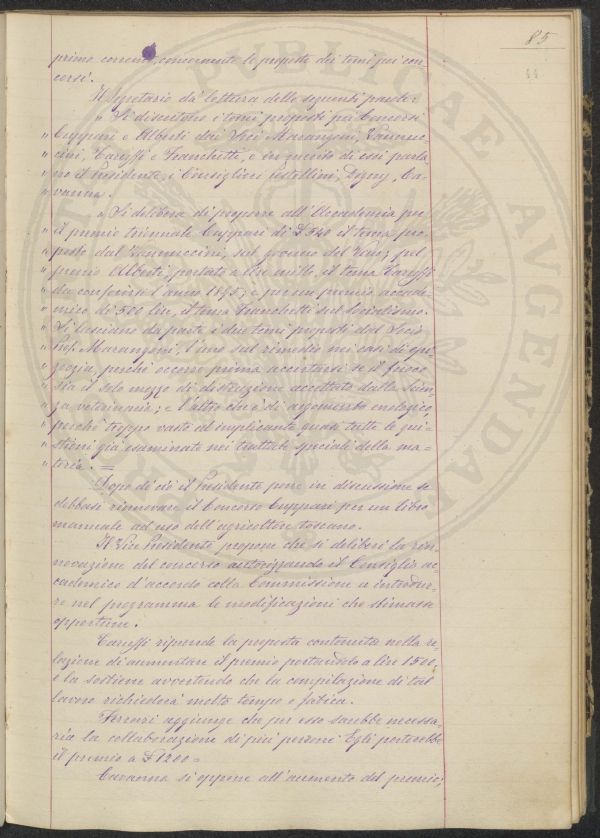 85
44
primo corrente, concernente le proposte dei temi pei con-
corsi.
Il Segretario dà lettura delle seguenti parole:
" Si discutono i temi proposti pei Concorsi
" Cuppari e Alberti dai Soci Marangoni, Vannuc-
" cini, Caruffi e Franchetti, e in merito di essi parla-
" no il Presidente, i Consiglieri Digny, Ca-
" vanna.
" Si delibera di proporre all'Accademia per
" il premio triennale Cuppari di £ 540 il tema pro-
" posto dal Vannuccini, sul governo del ; pel
" premio Alberti, portato a lire mille, il tema Caruffi
" da conferirsi l'anno 1895; e per un premio accade-
" mico di 500 lire, il tema Franchetti sul socialismo.
" Si lasciano da parte i due temi proposti dal Socio
" Prof. Marangoni, l'uno sul rimedio nei casi di epi-
" zoozia, perchè occorre prima accertarsi se il fuoco
" sia il solo mezzo di distruzione accettato dalla scien-
" za veterinaria; e l'altro che è di argomento enologico,
" perchè troppo vasto ed implicante quasi tutte le qui-
" stioni già esaminate nei trattati speciali della ma-
" teria. =
Dopo di ciò il Presidente pone in discussione se
debbasi rinnovare il Concorso Cuppari per un libro
manuale ad uso dell'agricoltore toscano.
Il Vice Presidente propone che si deliberi la rin-
novazione del concorso autorizzando il Consiglio ac
cademico d'accordo colla Commissione a introdur-
re nel programma le modificazioni che stimasse
opportune.
Caruffi riprende la proposta contenuta nella re-
lazione di aumentare il premio portandolo a lire 1500;
e la sostiene avvertendo che la compilazione di tal
lavoro richiederà molto tempo e fatica.
Ferrari aggiunge che per esso sarebbe necessa-
ria la collaborazione di più persone. Egli porterebbe
il premio a £ 1200 =
Cavanna si oppone all'aumento del premio;